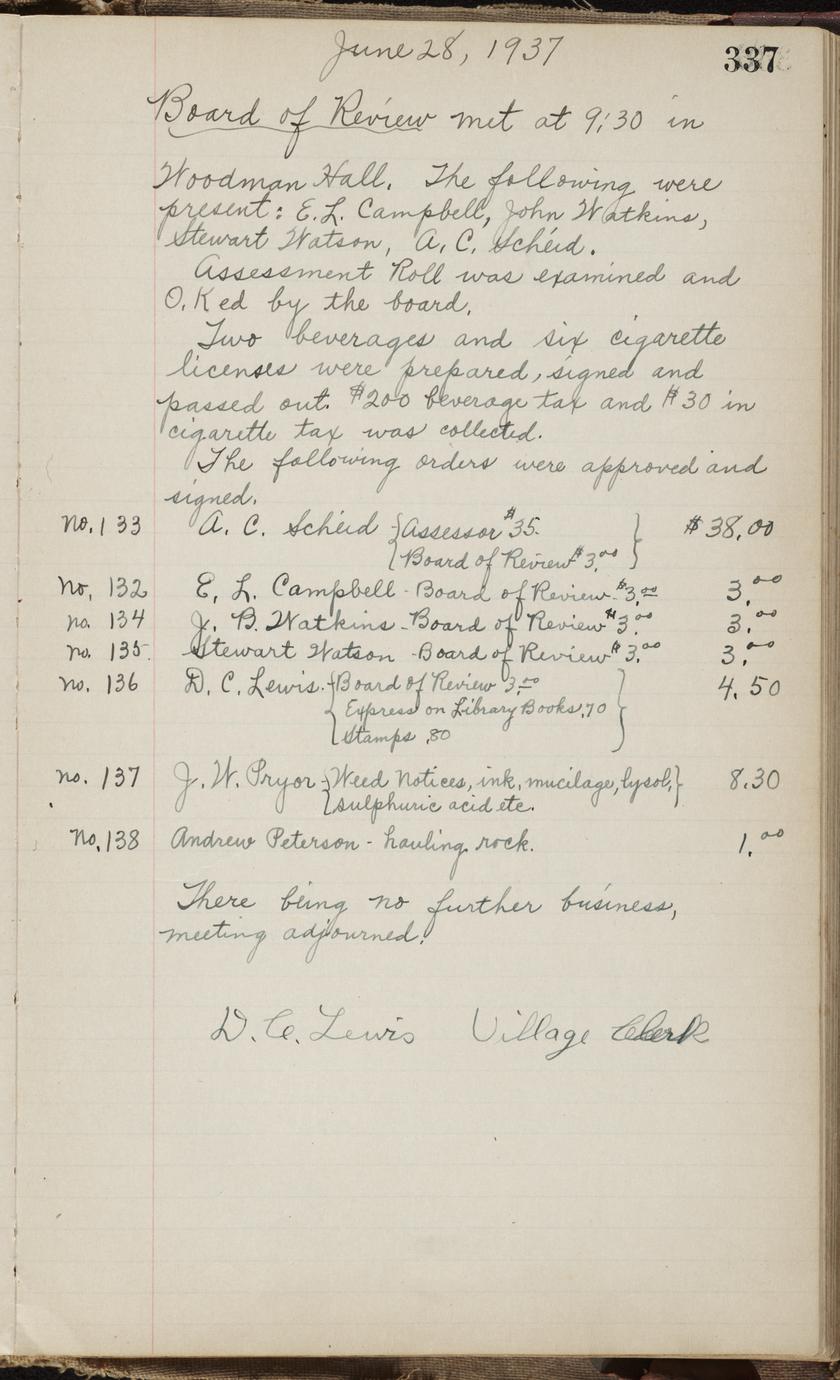 June 28, 1937
337
Board of Review met at 9:30 in
Woodman Hall. The following were
present: E.L. Campbell, John Watkins,
Stewart Watson, A.C. Scheid.
Assessment Roll was examined and
O.Ked by the board.
Two beverages and six cigarette
licenses were prepared, signed and
passed out. $200 beverage tax and $30 in
cigarette tax was collected.
The following orders were approved and
signed.
No. 133 A. C. Scheid {Assessor $35. } $38.00
{Board of Review $3.00 }
No. 132 E. L. Campbell - Board of Review - $3.00 3.00
no. 134 J. B. Watkins - Board of Review $3.00 3.00
no. 135. Stewart Watson - Board of Review $3.00 3.00
no. 136 D. C. Lewis - {Board of Review 3.00 } 4.50
Express on Library Books .70
Stamps .80
no. 137 J. W. Pryor - {Weed Notices, ink, mucilage, lysol,} 8.30
sulphuric acid etc.
No. 138 Andrew Peterson - hauling rock. 1.00
There being no further business,
meeting adjourned.
D. C. Lewis Village Clerk